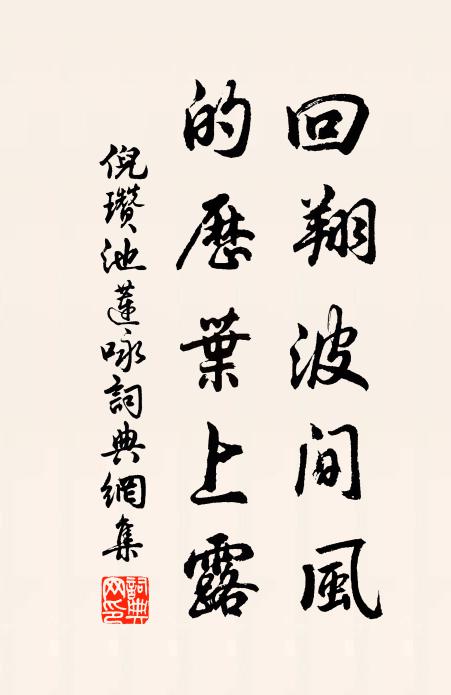 回翔波間風
的歷葉上露
倪瓚池蓮咏詞典網集
詞典
网印